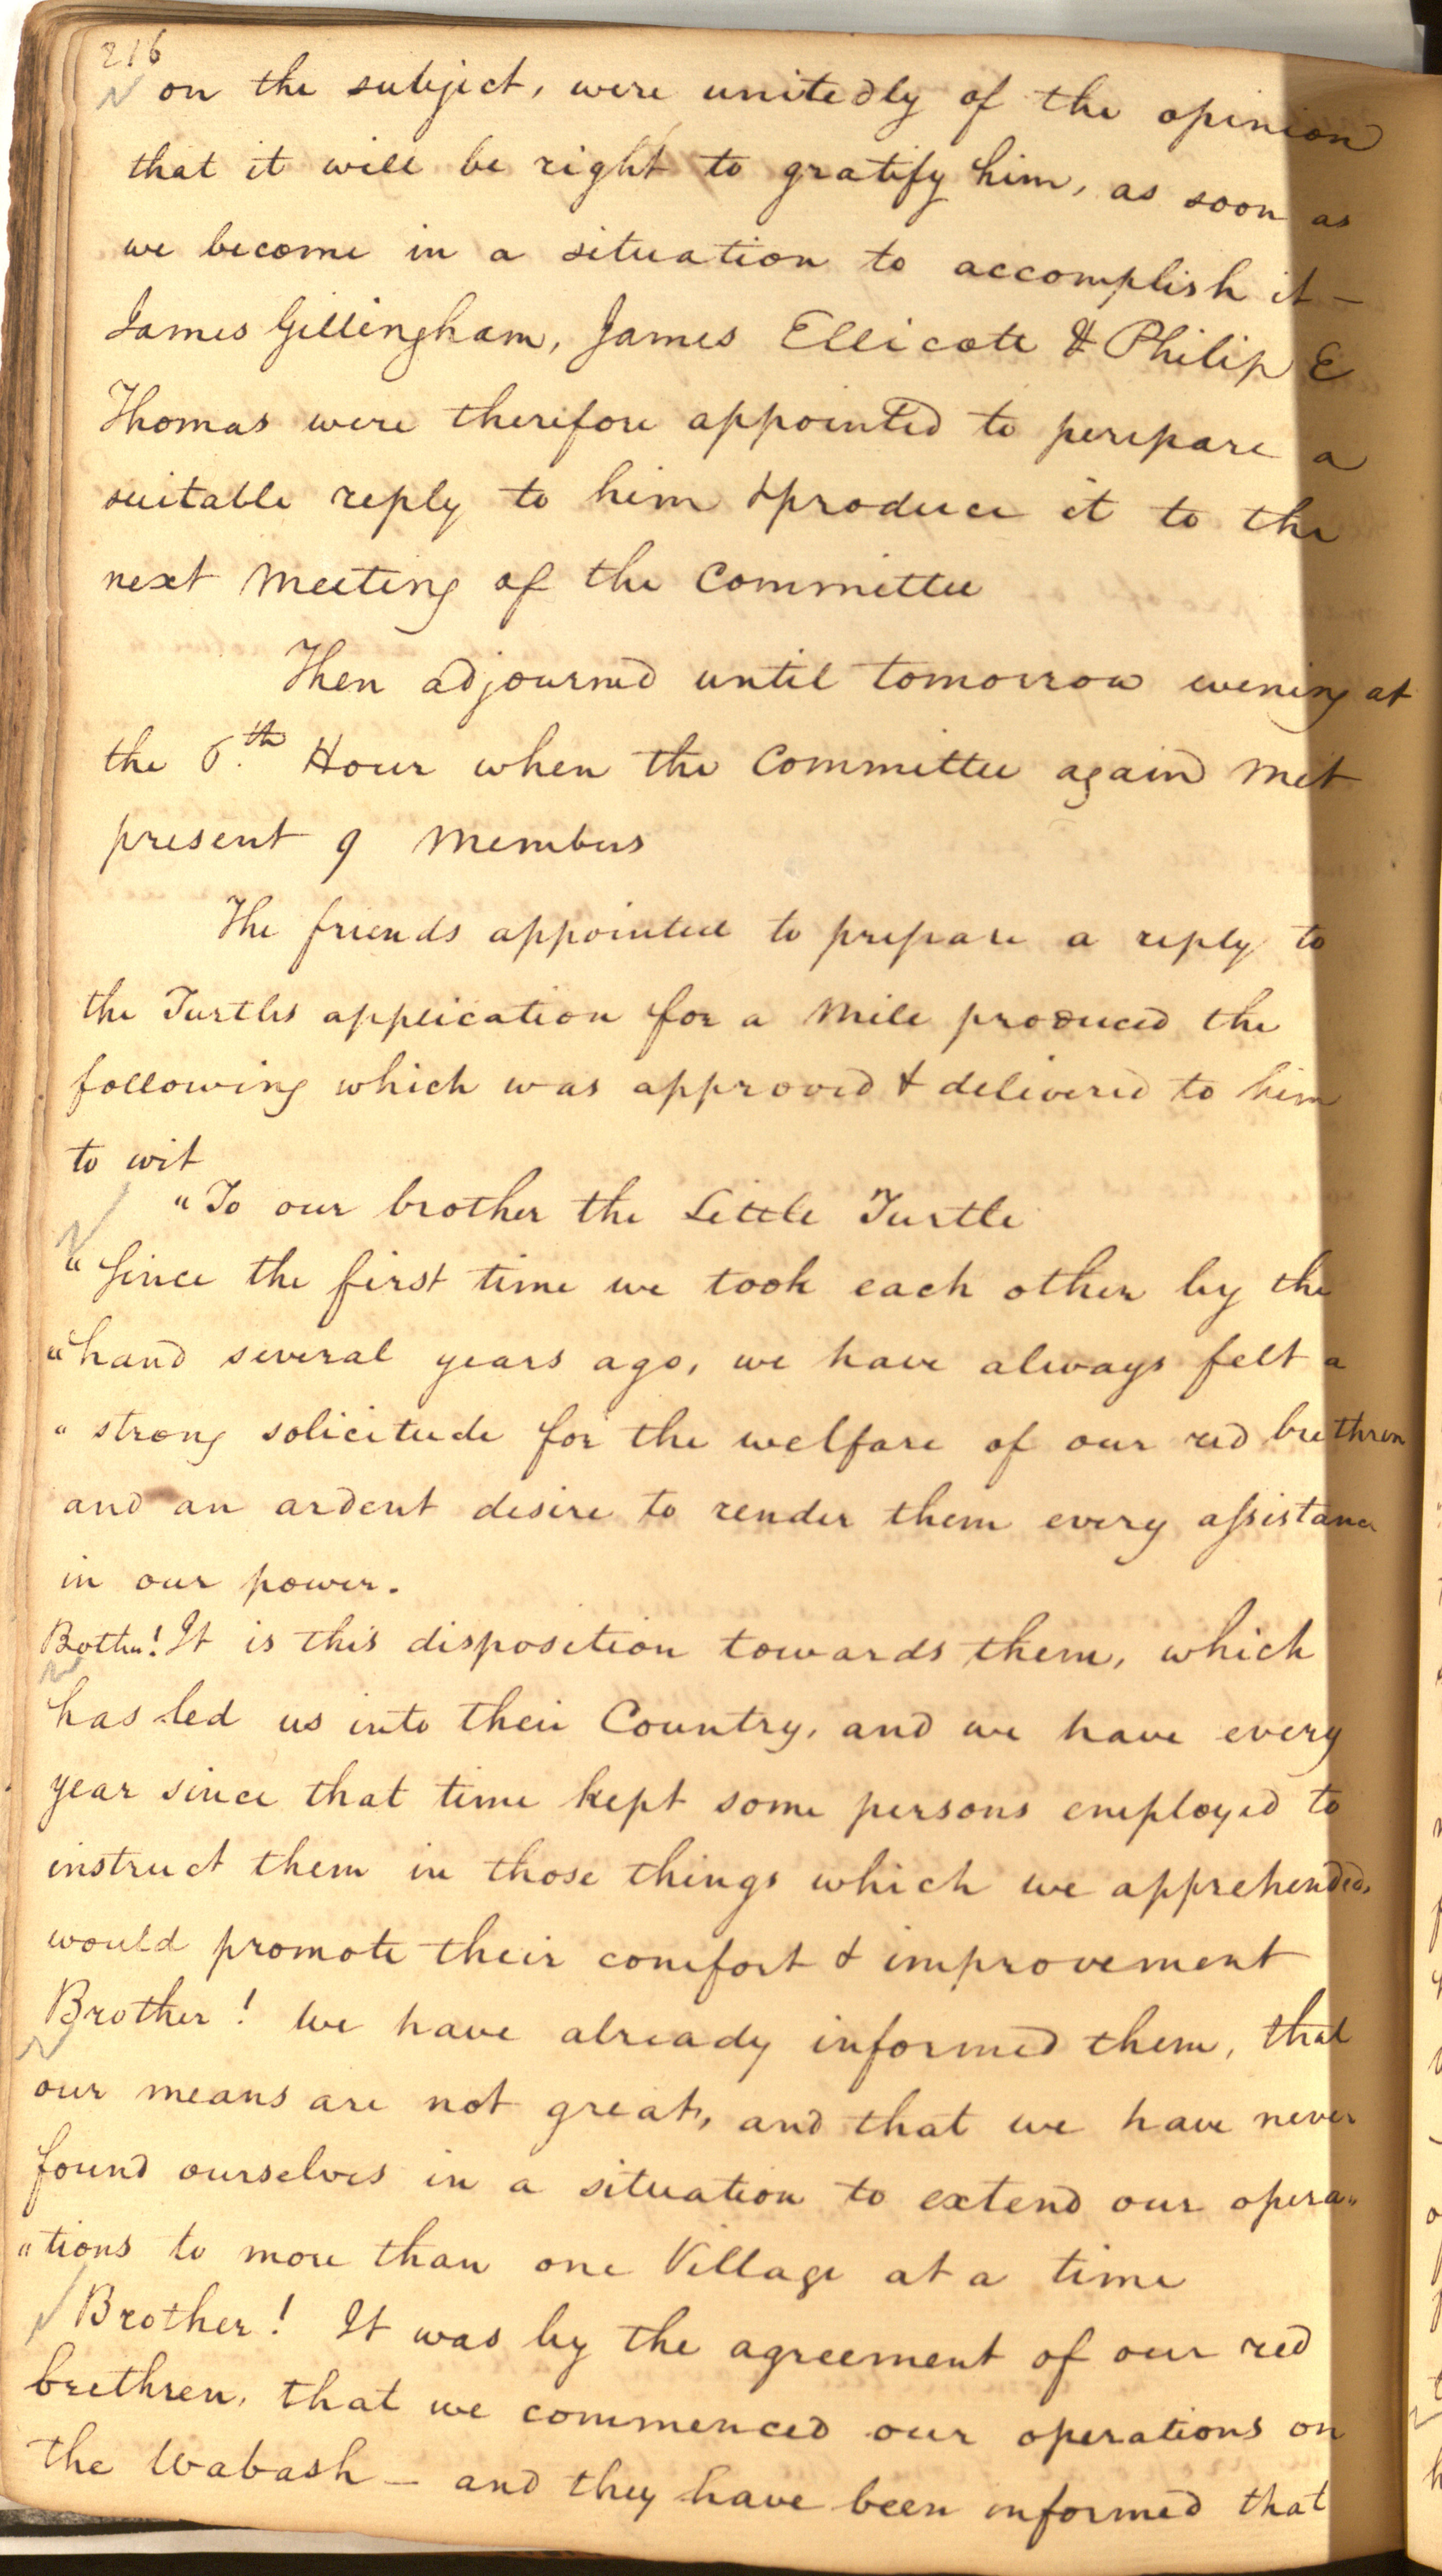 216
on the subject, were unitedly of the opinion
that it will be right to gratify him, as soon as
we become in a situation to accomplish it –
James Gillingham, James Ellicott & Philip E
Thomas were therefore appointed to perepare a
suitable reply to him & produce it to the
next meeting of the Committee
Then adjourned until tomorrow evening at
the 6.th Hour when the Committee again met
present 9 Members
The friends appointed to prepare a reply to
the Turtles application for a Mile produced the
following which was approved & delivered to him
to wit
"To our brother the Little Turtle
"Since the first time we took each other by the
"hand several years ago, we have always felt a
" strong solicitude for the welfare of our red brethren
and an ardent desire to render them every assistance
in our power.
Brother! It is this disposition towards them, which
has led us into their Country, and we have every
year since that time kept some persons employed to
instruct them in those things which we apprehended,
would promote their comfort & improvement
Brother! We have already informed them, that
our means are not great, and that we have never
found ourselves in a situation to extend our opera"
"tions to more than one Village at a time
Brother! It was by the agreement of our red
brethren, that we commenced our operations on
the Wabash – and they have been informed that